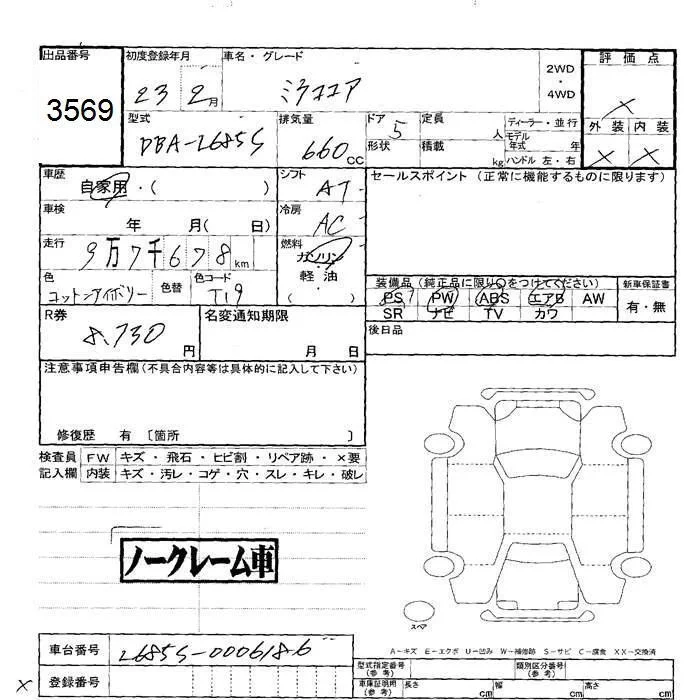 出品番号 初度登録年月 車名・グレード 評価点
3569 23 2月 ミラココア 2WD・4WD ×
型式 排気量 ドア 定員 ディーラー・並行 外装 内装
DBA-L685S 660cc 5 人 モデル年式 年 × ×
形状 積載 kg ハンドル 左・右
車歴 シフト セールスポイント (正常に機能するものに限ります)
自家用・( ) AT
車検 冷房
年 月( 日) AC
走行 燃料
9万7千678km ガソリン・軽油
色 色替 色コード ( ) 装備品 (純正品に限り○をつけてください) 新車保証書
コットンアイボリー T19 PS PW ABS エアB AW 有・無
SR ナビ TV カワ
R券 名変通知期限 後日品
8,730円 月 日
注意事項申告欄(不具合内容等は具体的に記入して下さい)
修復歴 有 〔箇所 〕
検査員 FW キズ・飛石・ヒビ割・リペア跡・×要
記入欄 内装 キズ・汚レ・コゲ・穴・スレ・キレ・破レ
ノークレーム車
スペア
A-キズ E-エクボ U-凹み W-補修跡 S-サビ C-腐食 XX-交換済
車台番号 L685S-0006186 型式指定番号(参考) 類別区分番号(参考)
× 登録番号 車庫証明用(参考) 長さ cm 幅 cm 高さ cm